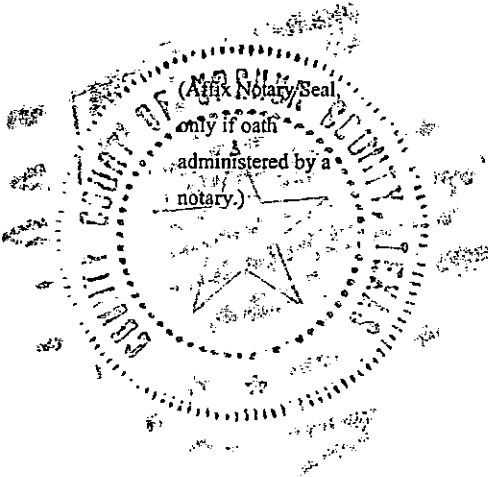 (Affix Notary Seal,
only if oath
administered by a
notary.)
COUNTY COURT OF COUNTY, TEXAS